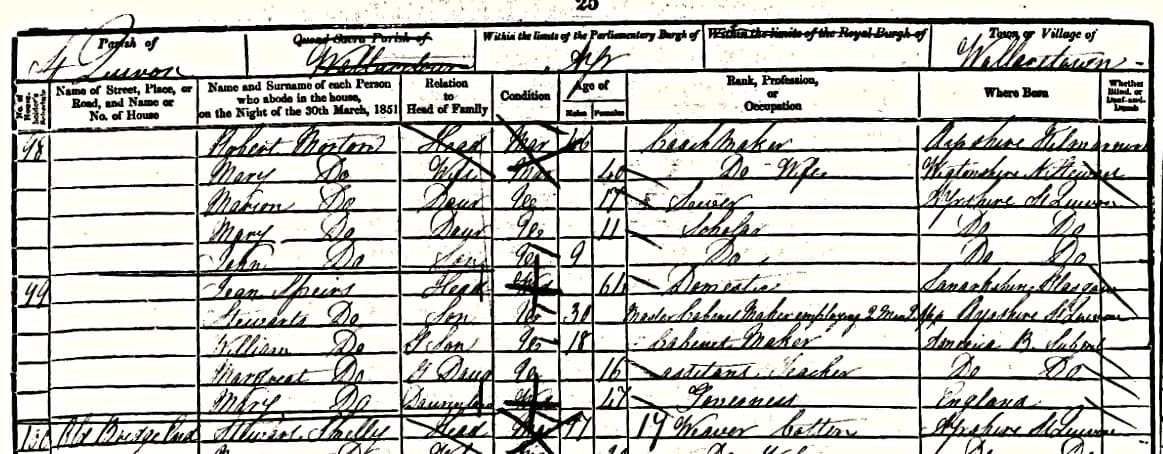 25
Parish of
St Quivox
Quoad Sacra Parish of
Wallacetown
Within the limits of the Parliamentary Burgh of
Ayr
Within the limits of the Royal Burgh of
Town or Village of
Wallacetown
No. of House-holder's Schedule
Name of Street, Place, or Road, and Name or No. of House
Name and Surname of each Person who abode in the house, on the Night of the 30th March, 1851
Relation to Head of Family
Condition
Age of
Males Females
Rank, Profession, or Occupation
Where Born
Whether Blind, or Deaf-and-Dumb
98 Robert Morton Head Mar 46 Coach Maker Ayrshire Kilmarnock
Mary Do Wife Mar 40 Do Wife Wigtonshire N. Stewart
Marion Do Daur Un 17 Sewer Ayrshire St Quivox
Mary Do Daur Un 11 Scholar Do Do
John Do Son Un 9 Do Do Do
99 Jean Speirs Head 61 Domestic Lanarkshire Glasgow
Do Son Un 30 Master Cabinet Maker employing 2 Men Ayrshire St Quivox
William Do G Son Un 18 Cabinet Maker America B. Subject
Margreat Do G Daug Un 16 assistant Teacher Do Do
Mary Do Daur 47 Governess England
100 Old Bridge End Stewart Smelly Head Mar Weaver Cotton Ayrshire St Quivox